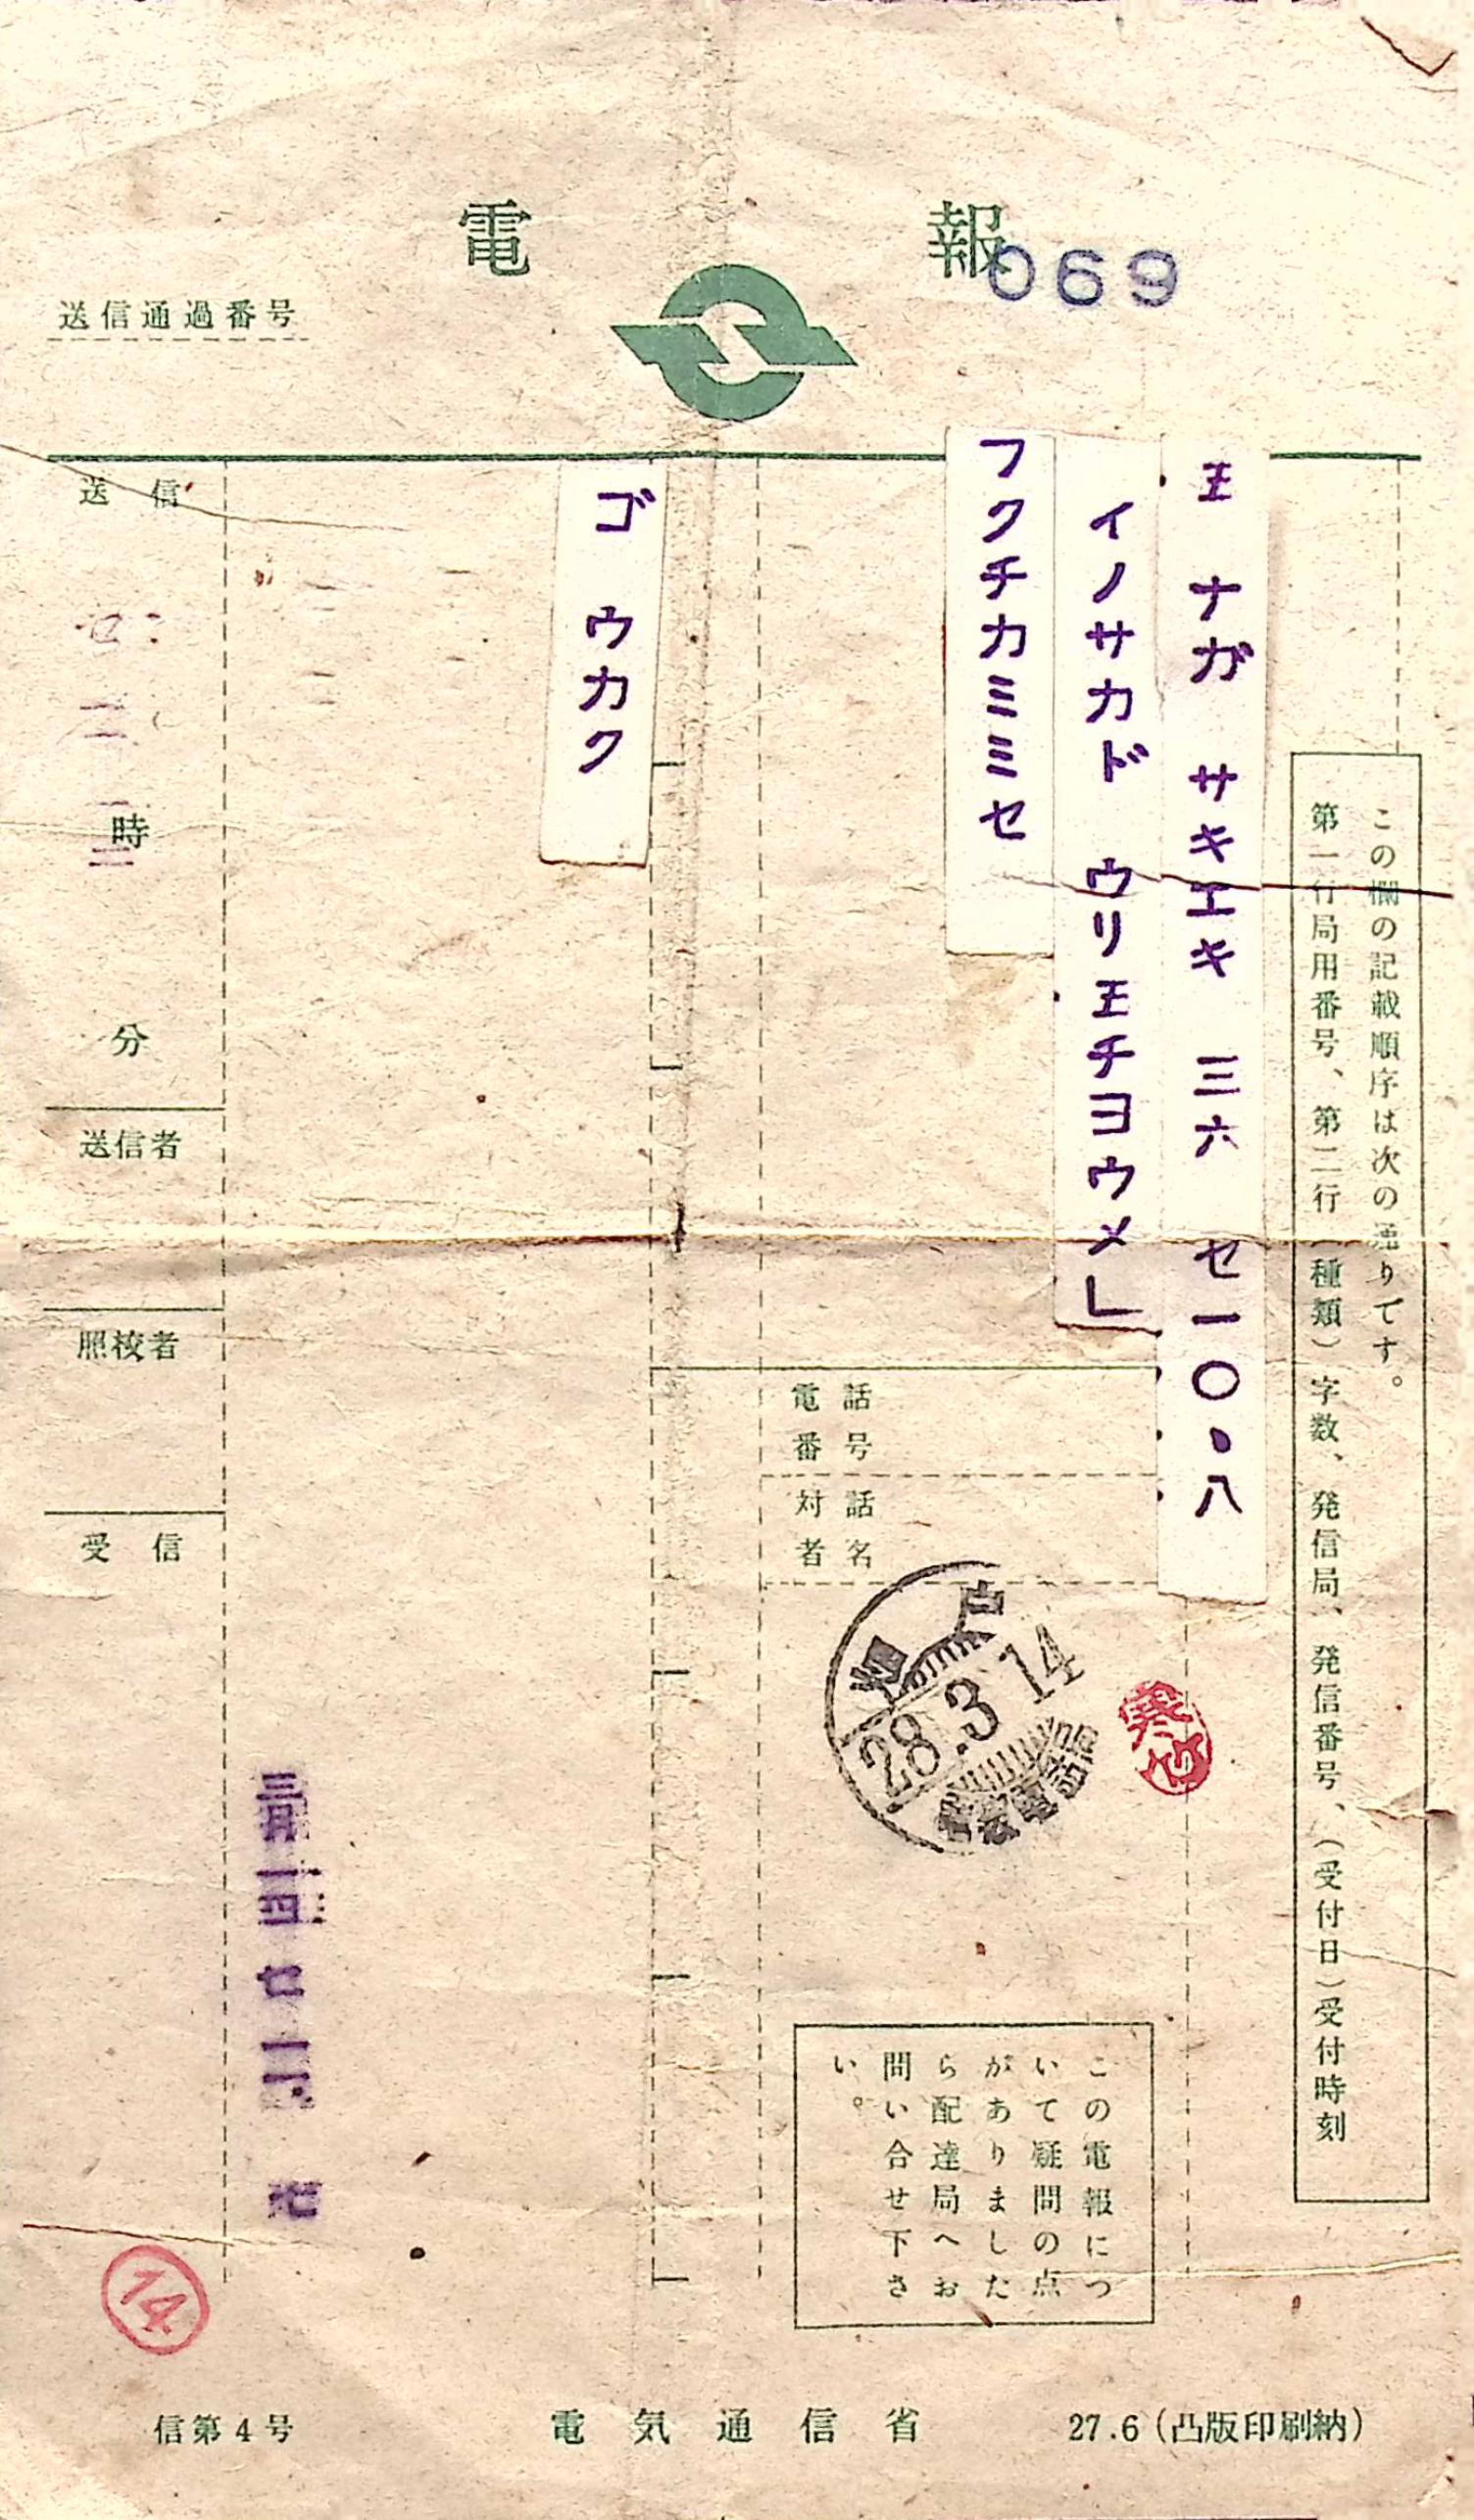 電報
069
送信通過番号
この欄の記載順序は次の通りです。
第一行局用番号、第二行(種類)字数、発信局、発信番号、(受付日)受付時刻
王 ナガ サキエキ 三六 セ一〇・八
イノサカド ウリ王チヨウメ」
フクチカミミセ
ゴ ウカク
電話
番号
対話
者名
戸
28.3.14
この電報につ
いて疑問の点
がありました
ら配達局へお
問い合せ下さ
い。
送信
時
分
送信者
照校者
受信
14
信第4号
電気通信省
27.6(凸版印刷納)